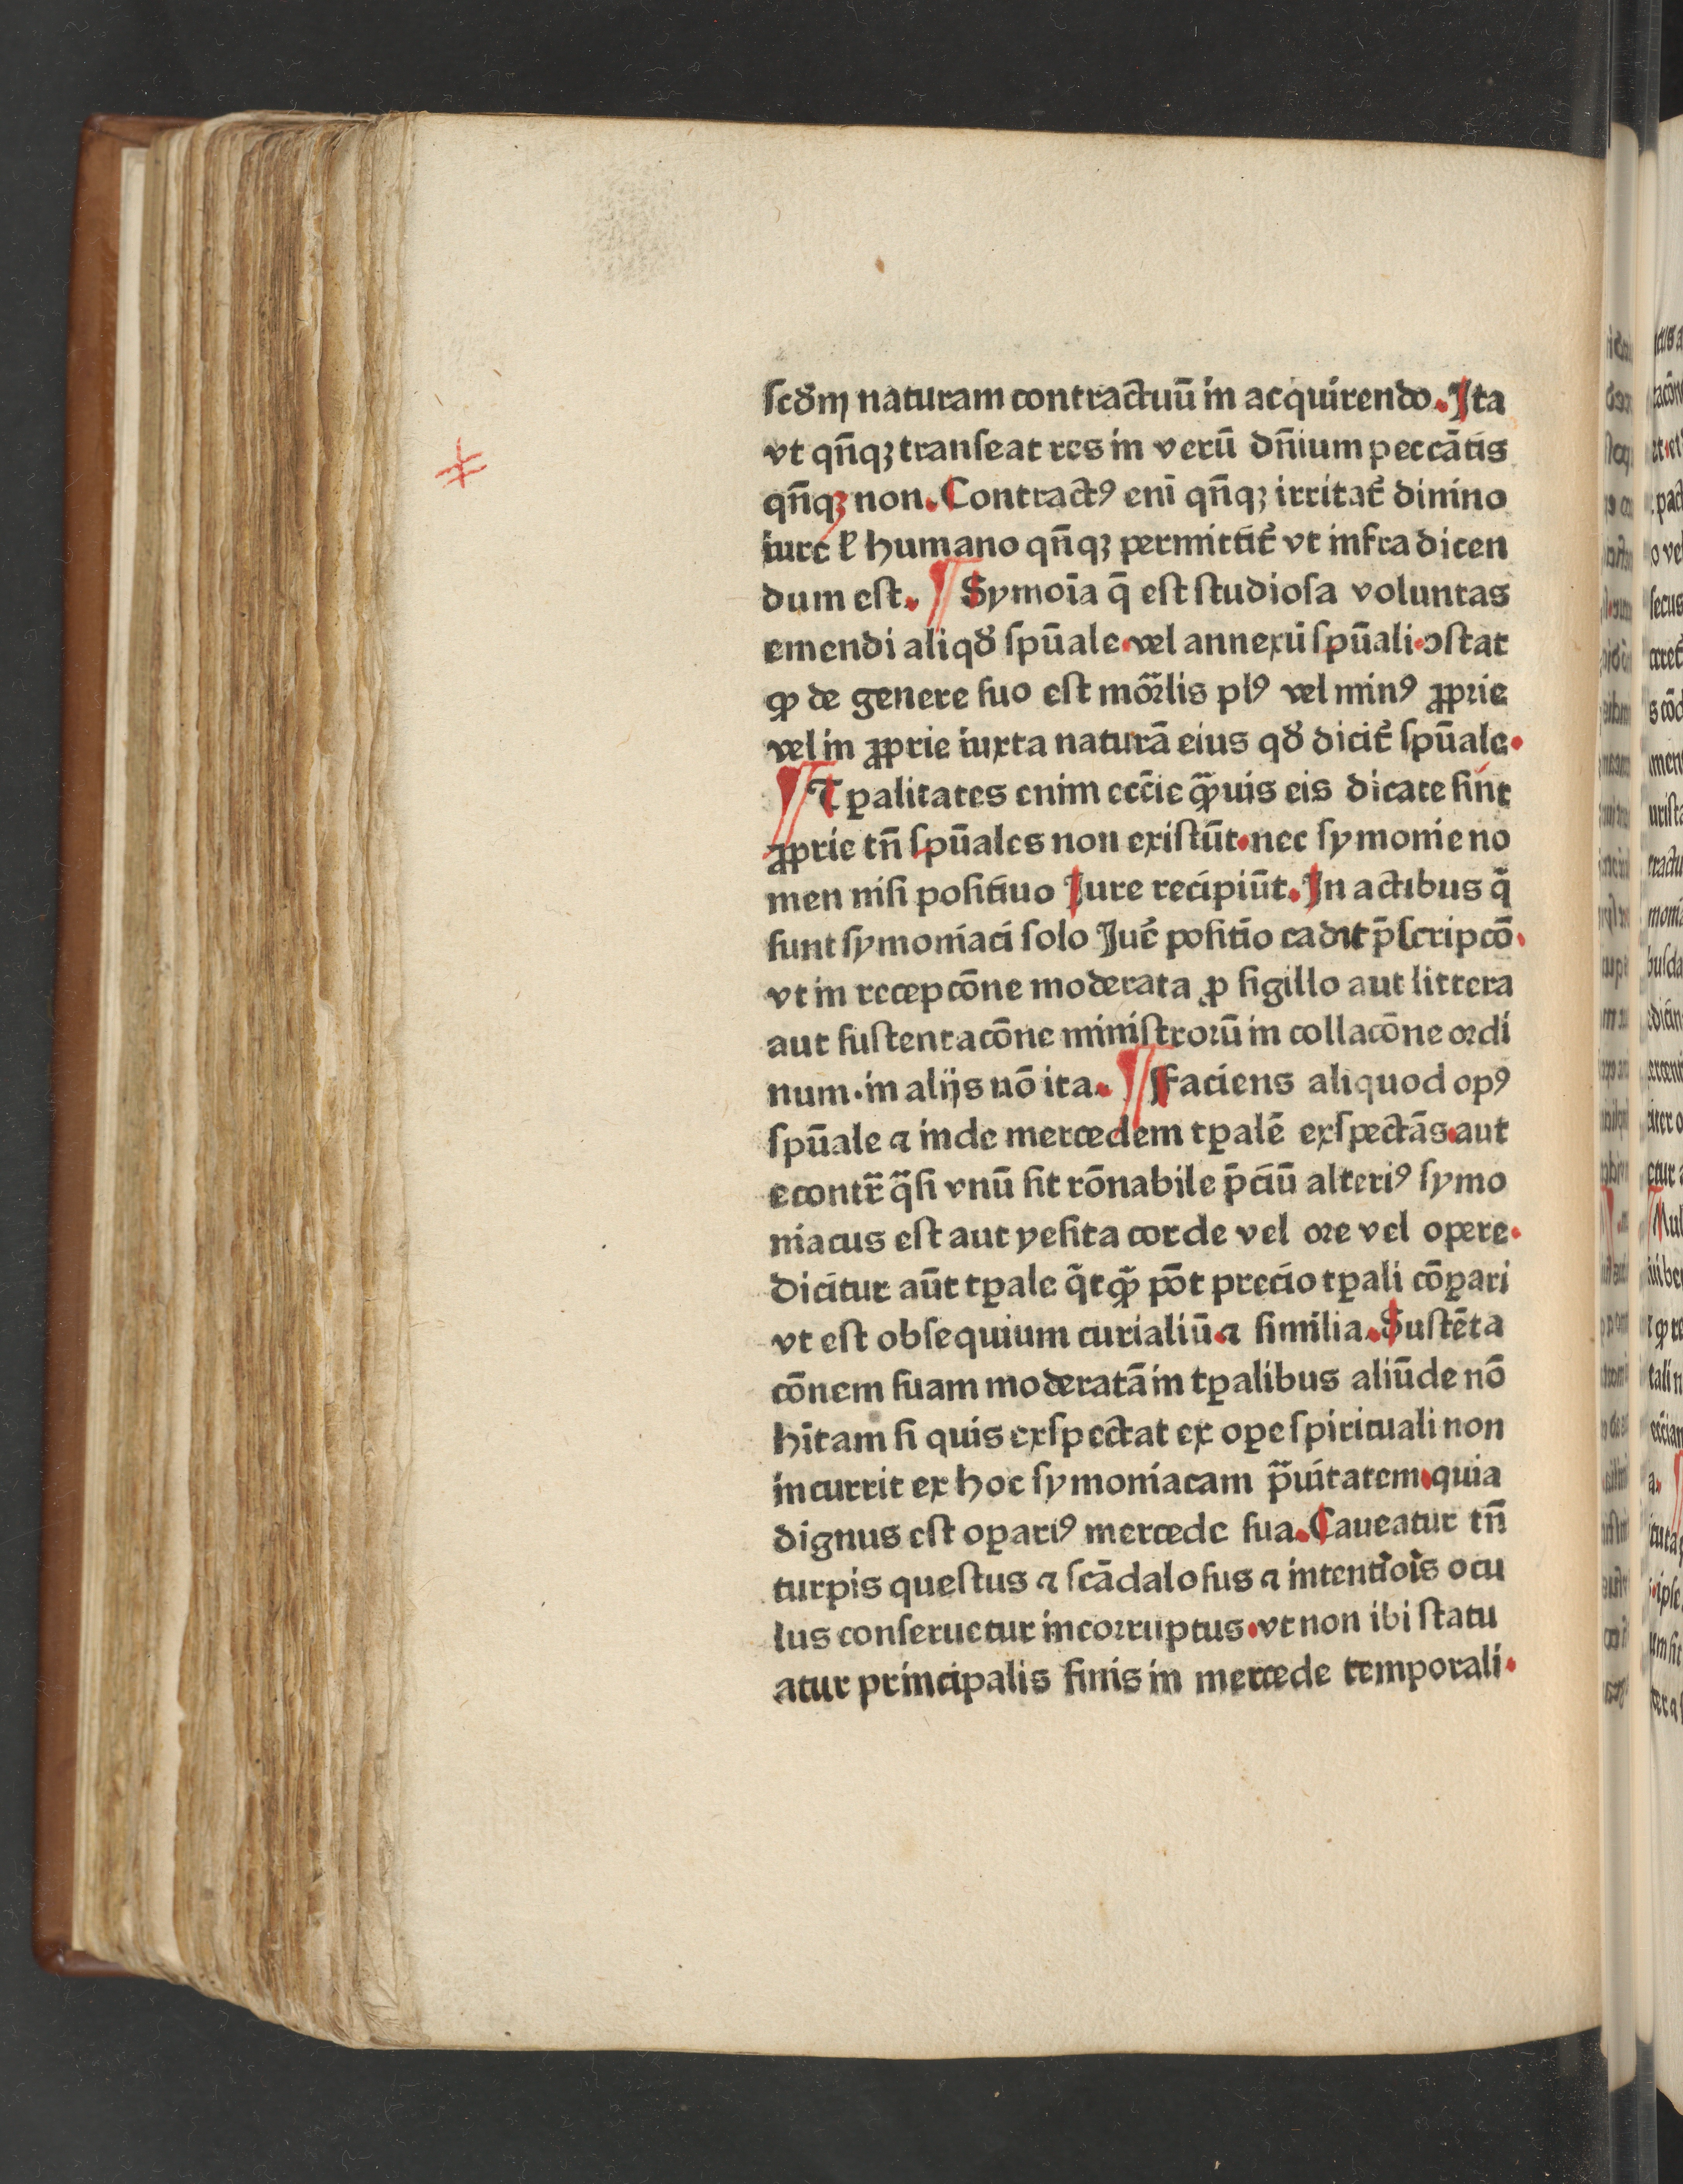 ſcd̕m naturam contractuū in acquirendo. Ita
vt qn̄qꝫ tranſeat res in verū dn̄ium peccātis
qn̄qꝫ non. Contractꝰ enī qn̄qꝫ irritat᷒ dinino
iure ł humano qn̄qꝫ permittit᷒ vt infra dicen
dum eſt. ¶ Symoīa q̄ eſt ſtudioſa voluntas
emendi aliqd̕ ſpūale·vel annexū ſpūali·ↄſtat
ꝙ de genere ſuo eſt mōrlis plꝰ vel minꝰ ꝓprie
vel in ꝓprie iuxta naturā eius qd̕ dicit᷒ ſpūale·
¶ Tꝑalitates enim ecc̄ie qͣꝫuis eis dicate ſint
ꝓprie tn̄ ſpūales non exiſtūt·nec ſymonie no
men niſi poſitiuo Iure recipiūt. In actibus q̄
ſunt ſymoniaci ſolo Iur̄ poſitio cadit p̄ſcripcō·
vt in recepcōne moderata ꝓ ſigillo aut littera
aut ſuſtentacōne miniſtrorū in collacōne ordi
num·in alijs nō ita. ¶ Faciens aliquod opꝰ
ſpūale ⁊ inde mercedem tꝑalē exſpectās·aut
econtr̄ qͣſi vnū ſit rōnabile p̄ciū alteriꝰ ſymo
niacus eſt aut yeſita corde vel ore vel opere·
dicitur aūt tꝑale q̄tqͣꝫ pōt precio tꝑali cōꝑari
vt eſt obſequium curialiū·⁊ ſimilia. Suſtēta
cōnem ſuam moderatā in tꝑalibus aliūde nō
hītam ſi quis exſpectat ex oꝑe ſpirituali non
incurrit ex hoc ſymoniacam pͣuitatem·quia
dignus eſt oꝑariꝰ mercede ſua. Caueatur tn̄
turpis queſtus ⁊ ſcādaloſus ⁊ intentiōis ocu
lus conſeruetur incorruptus·vt non ibi ſtatu
atur principalis finis in mercede temporali·